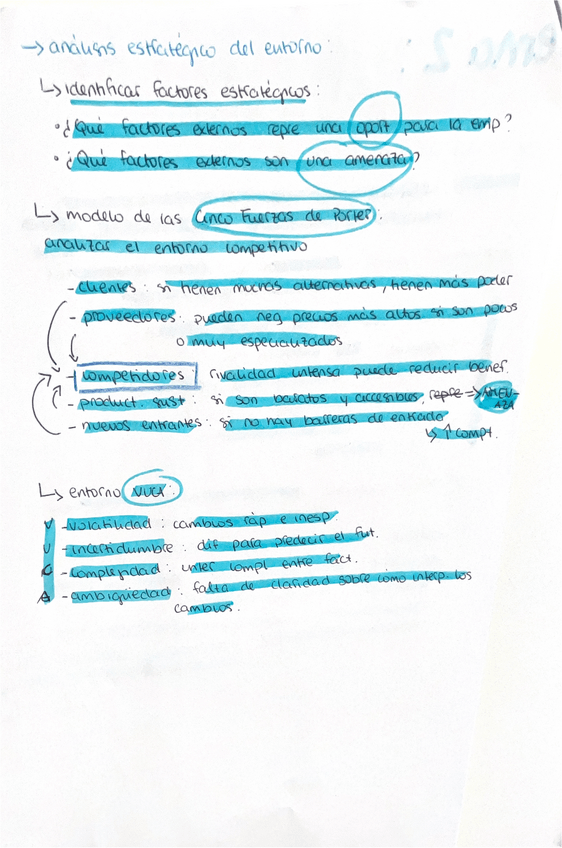 → análisis estratégico del entorno:
↳ identificar factores estratégicos:
• ¿Qué factores externos repre una oport para la emp?
• ¿Qué factores externos son una amenaza?
↳ modelo de las Cinco Fuerzas de Porter:
analizar el entorno competitivo
- clientes: si tienen muchas alternativas, tienen más poder
- proveedores: pueden neg precios más altos si son pocos
o muy especializados
- competidores: rivalidad intensa puede reducir benef.
- product. sust: si son baratos y accesibles, repre => AMEN-
AZA
- nuevos entrantes: si no hay barreras de entrada
↳ ↑ compt.
↳ entorno VUCA:
V - volatilidad: cambios ráp e inesp.
U - incertidumbre: dif para predecir el fut.
C - complejidad: inter compl entre fact.
A - ambigüedad: falta de claridad sobre cómo interp los
cambios.